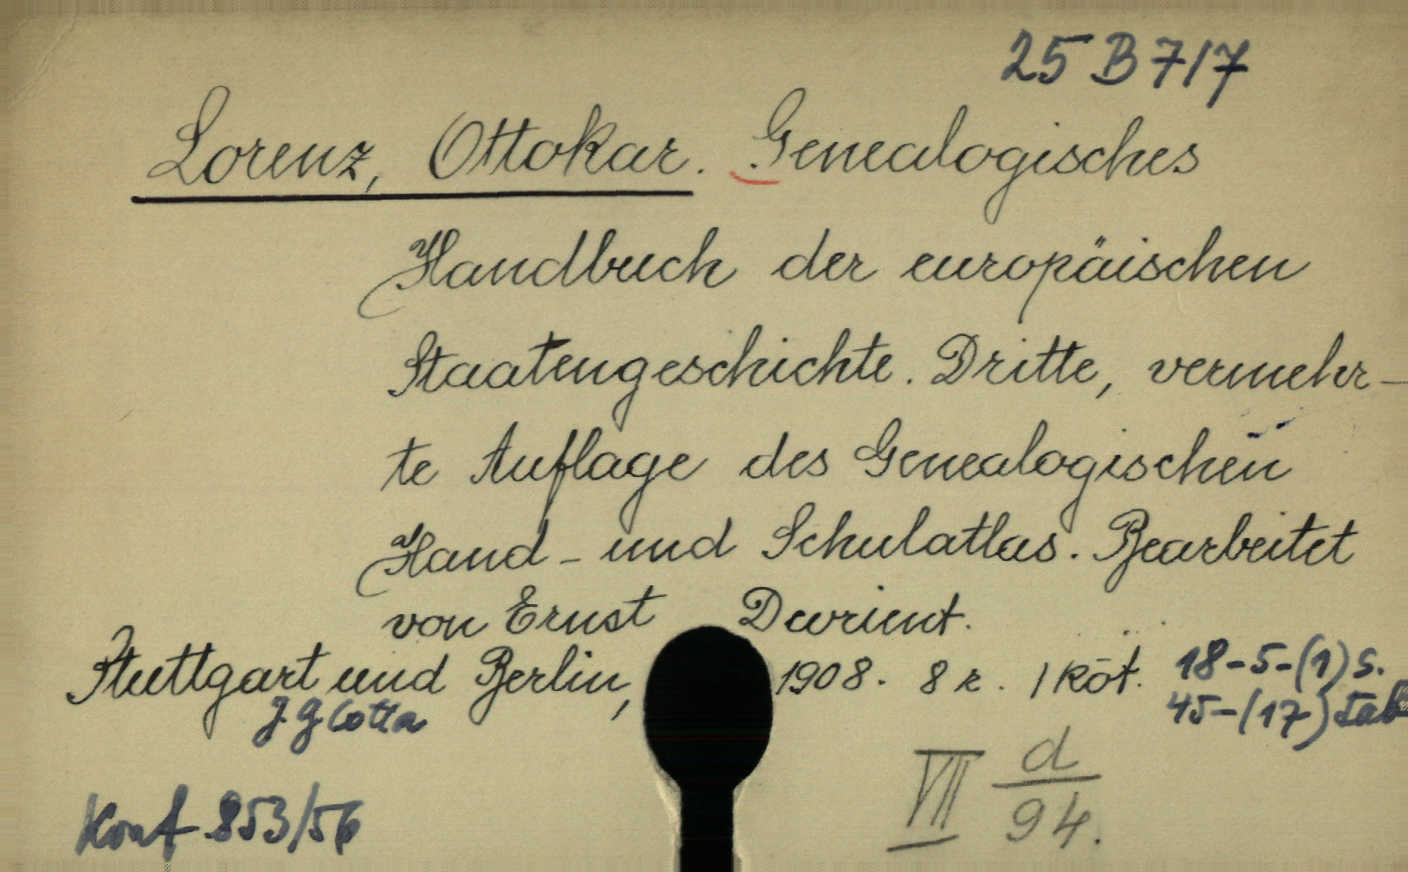 25 B 717
Lorenz, Ottokar. Genealogisches
Handbuch der europäischen
Staatengeschichte. Dritte, vermehr-
te Auflage des Genealogischen
Hand- und Schulatlas. Bearbeitet
von Ernst Devrient.
Stuttgart und Berlin, 1908. 8 r. 1 köt. 18-5-(1) S.
J G Cotta 45-(17) Tab
VII d/94.
Konf 853/56